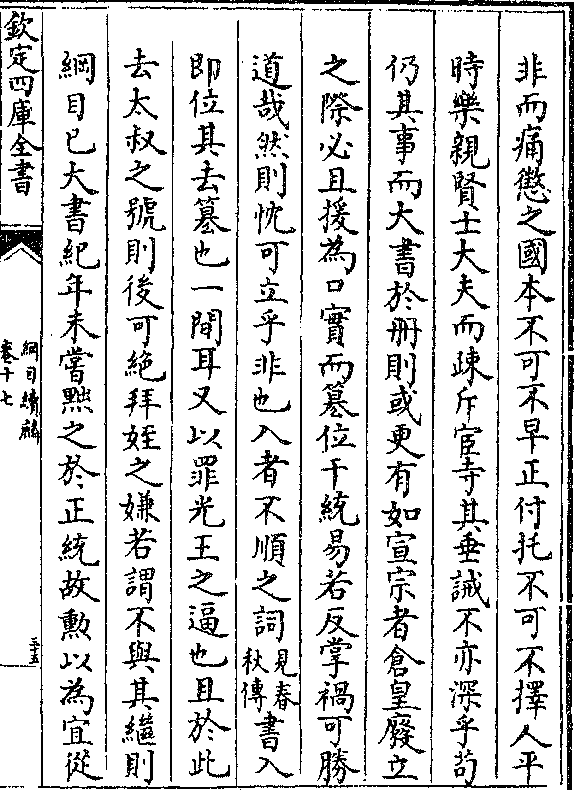 非而痛懲之國本不可不早正付托不可不擇人平
時樂親賢士大夫而疎斥宦寺其垂誡不亦深乎茍
仍其事而大書於冊則或更有如宣宗者倉皇廢立
之際必且援為口實而篡位干統易若反掌禍可勝
道哉然則忱可立乎非也入者不順之詞見春秋傳書入
即位其去篡也一間耳又以罪光王之逼也且於此
去太叔之號則後可絶拜姪之嫌若謂不與其繼則
綱目已大書紀年未嘗黜之於正統故勲以為宜從
欽定四庫全書
綱目續麟
卷十七
三十五